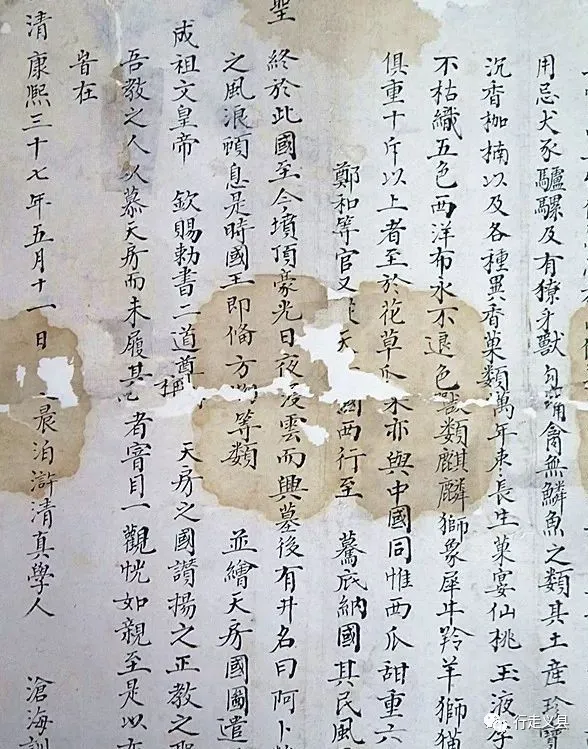 用忌犬豕驢騾及有獠牙獸勾嘴禽無鱗魚之類其土産珍寶
沉香枷楠以及各種異香菓類萬年枣長生菓宴仙桃玉液
不枯織五色西洋布永不退色獸類麒麟獅象犀牛羚羊獅猫
俱重十斤以上者至於花草瓜 亦與中國同惟西瓜甜重六
鄭和等官又 天 國西行至 驀底納國其民風
聖
終於此國至今墳頂豪光日夜 雲而興墓後有井名曰阿卜
之風浪頓息是時國王即備方物等類 並繪天房國圖遣
成祖文皇帝 欽賜勅書二道尊稱 天房之國讃揚之正教之
吾教之人以慕天房而未履其 者寓目一觀恍如親至是以
皆在
清康熙三十七年五月十一日 晨泊滸清真學人 滄海
行走义县